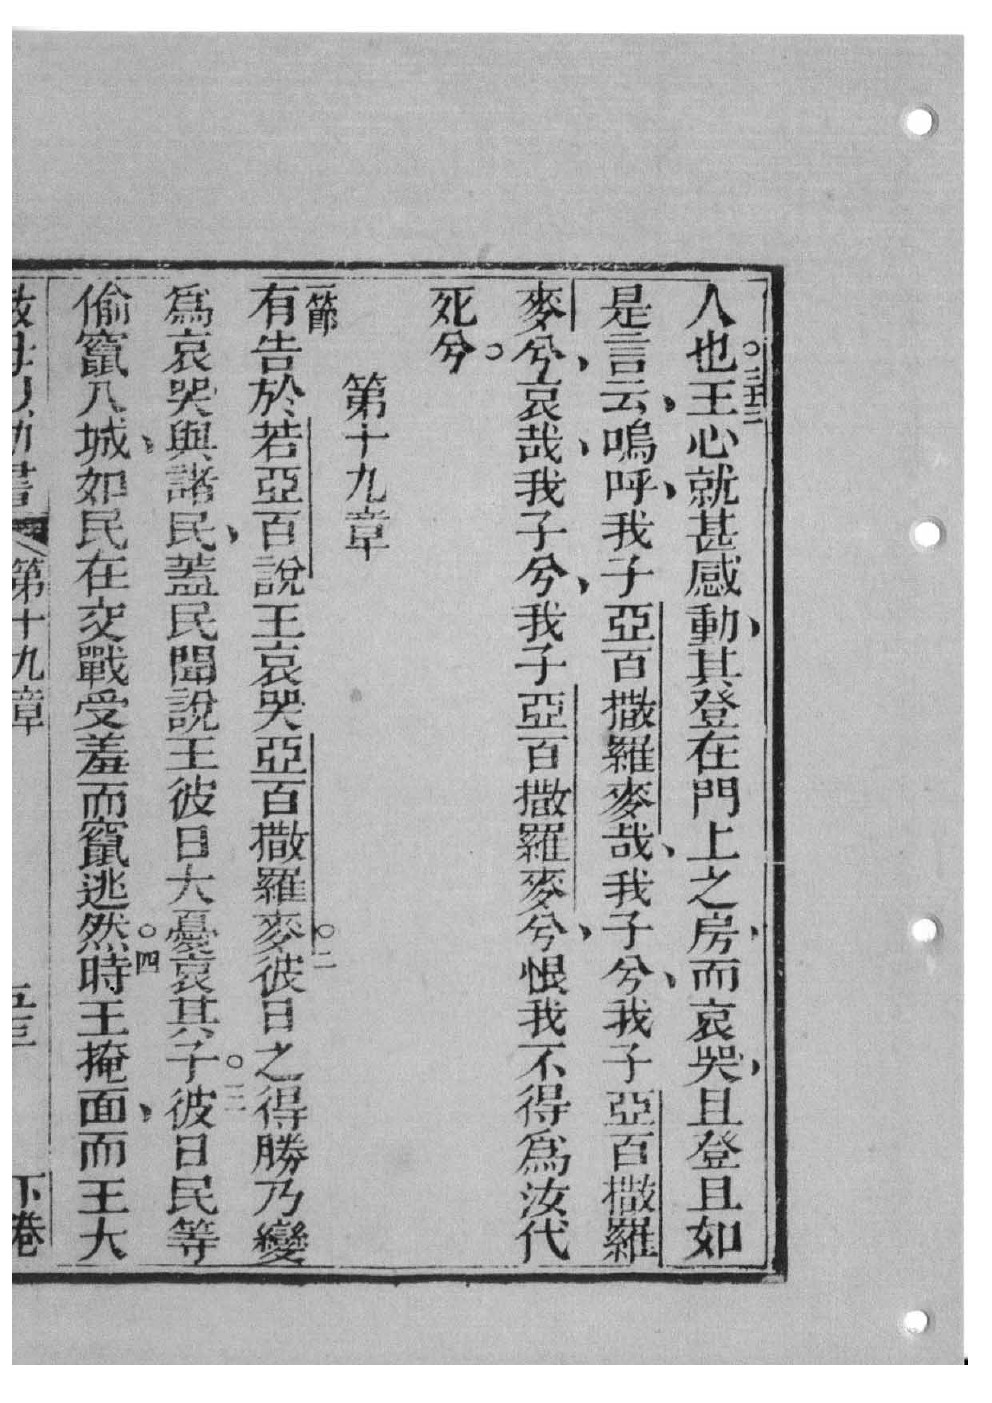 人也。三三王心就甚感動、其登在門上之房、而哀哭、且登且如
是言云、嗚呼、我子亞百撒羅麥哉、我子兮、我子亞百撒羅
麥兮、哀哉、我子兮、我子亞百撒羅麥兮、恨我不得為汝代
死兮。
第十九章
一節有告於若亞百說王哀哭亞百撒羅麥。二彼日之得勝乃變
為哀哭與諸民、蓋民聞說王彼日大憂哀其子。三彼日民等
偷竄入城、如民在交戰受羞而竄逃然。四時王掩面、而王大
第十九章
下卷